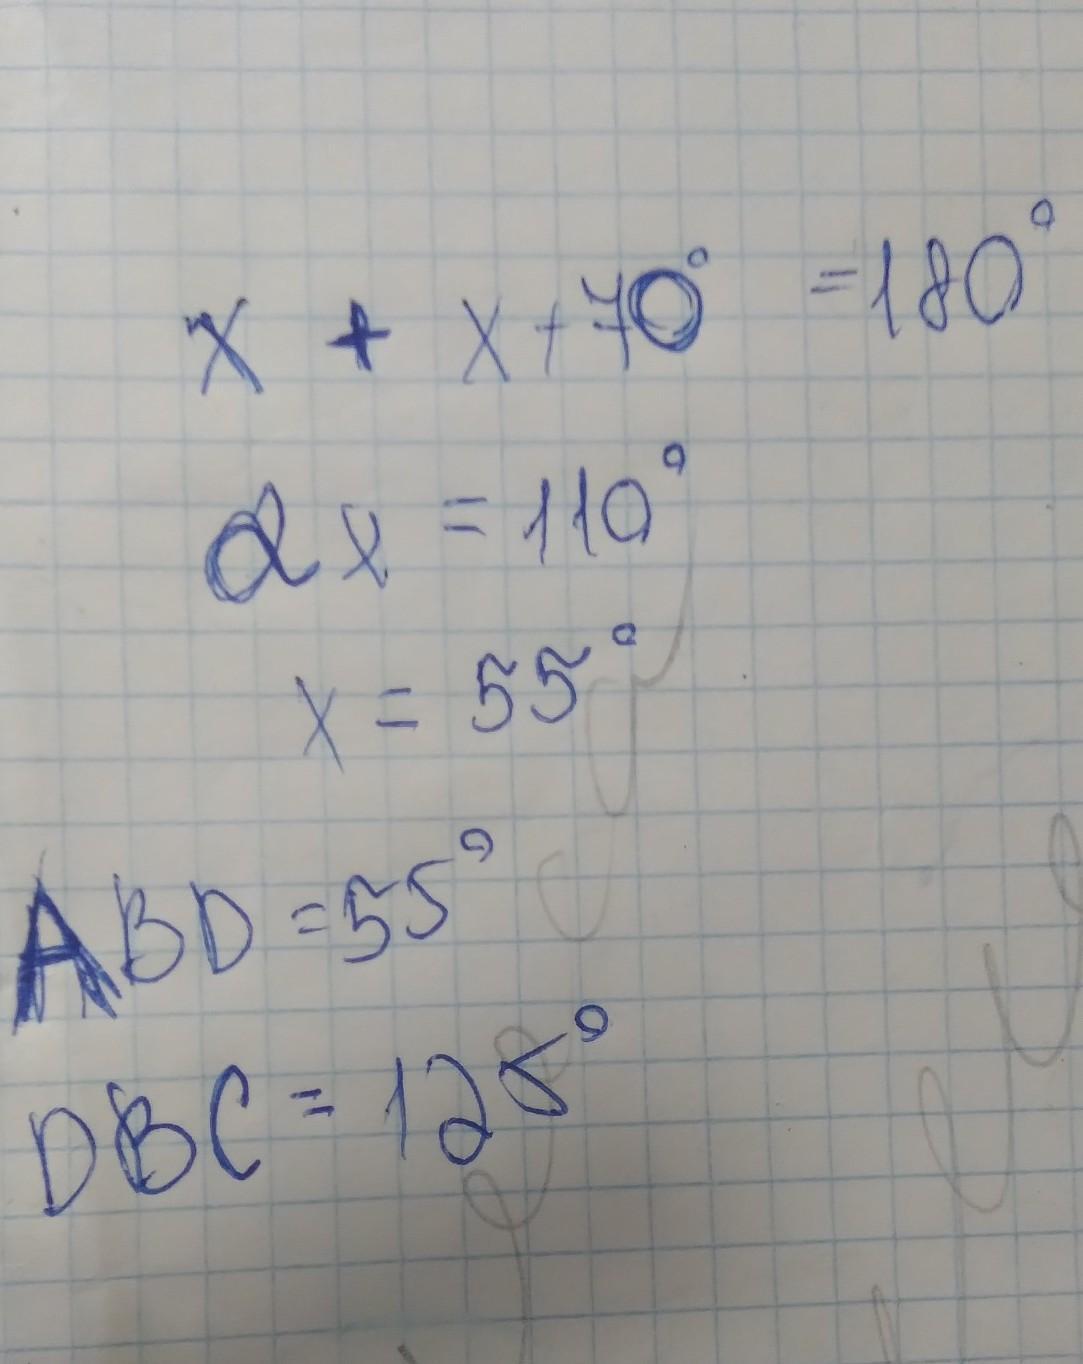 x + x + 70° = 180°
2x = 110°
x = 55°
ABD = 55°
DBC = 125°